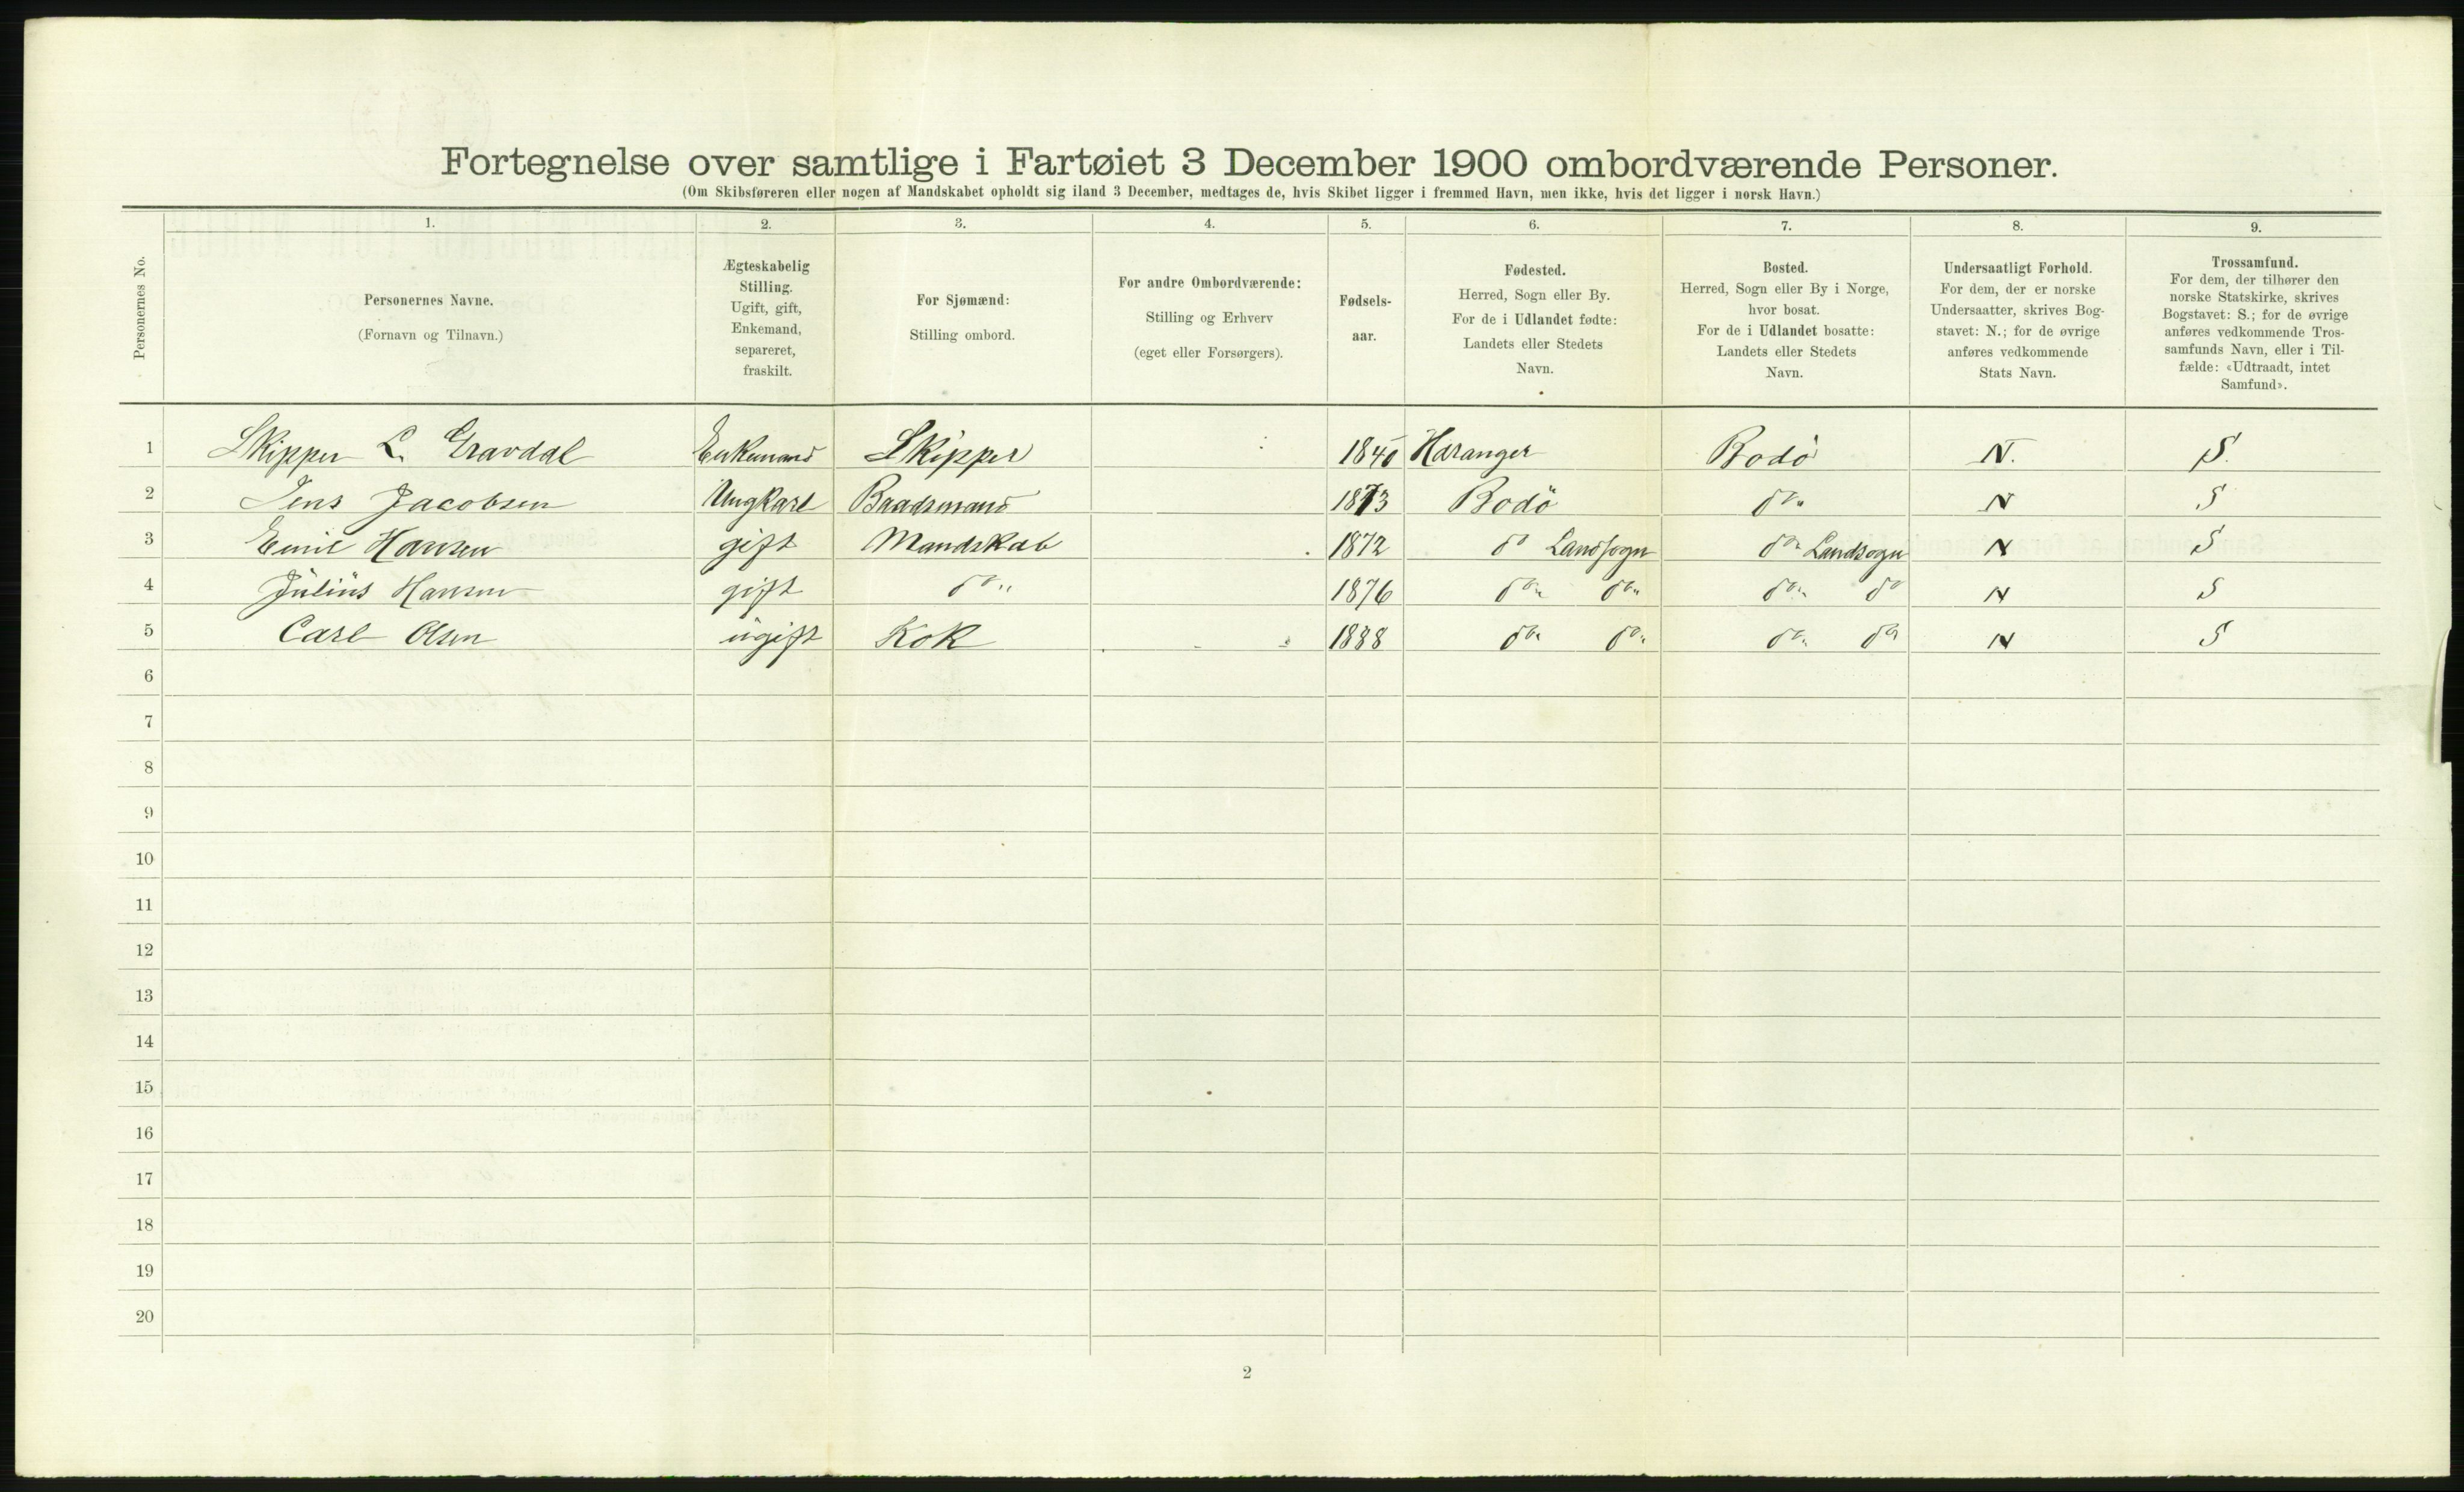 Fortegnelse over samtlige i Fartøiet 3 December 1900 ombordværende Personer.
(Om Skibsføreren eller nogen af Mandskabet opholdt sig iland 3 December, medtages de, hvis Skibet ligger i fremmed Havn, men ikke, hvis det ligger i norsk Havn.)
Personernes No.
1.
Personernes Navne.
(Fornavn og Tilnavn.)
2.
Ægteskabelig
Stilling.
Ugift, gift,
Enkemand,
separeret,
fraskilt.
3.
For Sjømænd:
Stilling ombord.
4.
For andre Ombordværende:
Stilling og Erhverv
(eget eller Forsørgers).
5.
Fødsels-
aar.
6.
Fødested.
Herred, Sogn eller By.
For de i Udlandet fødte:
Landets eller Stedets
Navn.
7.
Bosted.
Herred, Sogn eller By i Norge,
hvor bosat.
For de i Udlandet bosatte:
Landets eller Stedets
Navn.
8.
Undersaatligt Forhold.
For dem, der er norske
Undersaatter, skrives Bog-
stavet: N.; for de øvrige
anføres vedkommende
Stats Navn.
9.
Trossamfund.
For dem, der tilhører den
norske Statskirke, skrives
Bogstavet: S.; for de øvrige
anføres vedkommende Tros-
samfunds Navn, eller i Til-
fælde: «Udtraadt, intet
Samfund».
1 Skipper L. Gravdal Enkemand Skipper 1840 Haranger Bodö N. S.
2 Jens Jacobsen Ungkarl Baadsmand 1873 Bodö do N S
3 Emil Hansen gift Mandskab 1872 do Landsogn do Landsogn N S
4 Julius Hansen gift do 1876 do do do do N S
5 Carl Olsen ugift Kok 1888 do do do do N S
6
7
8
9
10
11
12
13
14
15
16
17
18
19
20
2